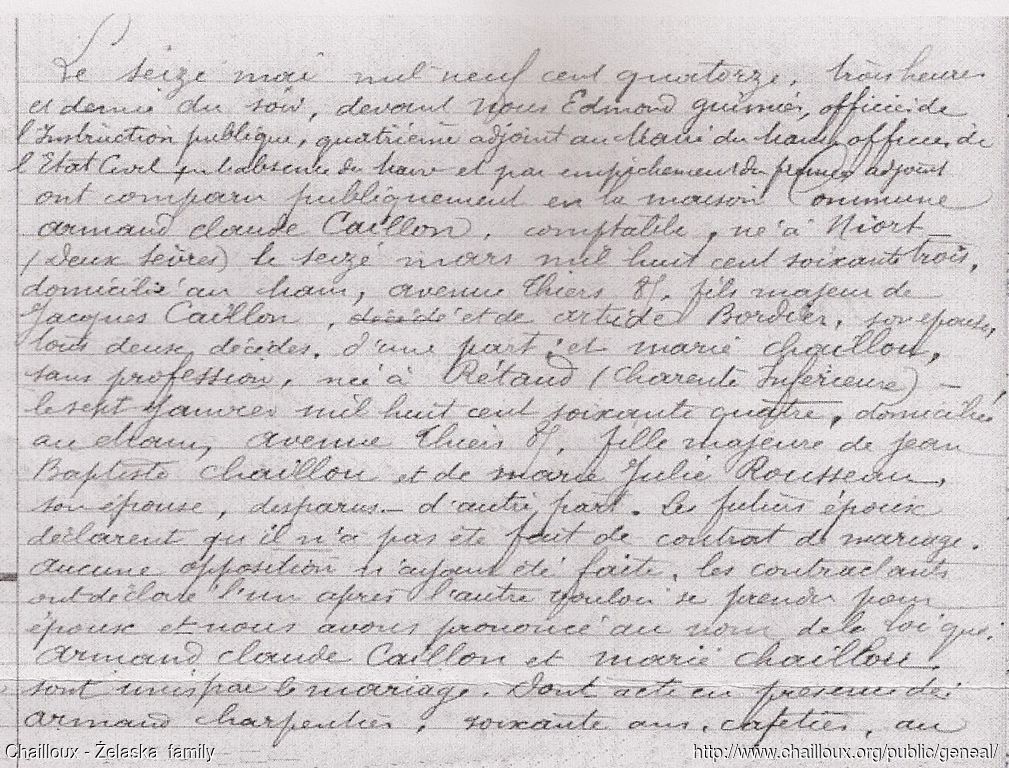 Le seize mai mil neuf cent quatorze, trois heures
et demie du soir, devant nous Edmond officier de
l'Instruction publique, quatrième adjoint au Maire du officier de
l'Etat Civil en l'absence du Maire et par empêchement du premier adjoint
ont comparu publiquement en la maison Commune
Armand Claude Caillon, comptable, né à Niort
(Deux Sèvres) le seize mars mil huit cent soixante trois,
domicilié au avenue Thiers 81, fils majeur de
Jacques Caillon, décédé et de Bordier, son épouse,
tous deux décédés, d'une part; et Marie Chaillou,
sans profession, née à Rétaud (Charente Inférieure) —
le sept Janvier mil huit cent soixante quatre, domiciliée
au avenue Thiers 81, fille majeure de Jean
Baptiste Chaillou et de Marie Julie Rousseau,
son épouse, disparus — d'autre part. Les futurs époux
déclarent qu'il n'a pas été fait de contrat de mariage.
Aucune opposition n'ayant été faite, les contractants
ont déclaré l'un après l'autre vouloir se prendre pour
époux et nous avons prononcé au nom de la loi que
Armand Claude Caillon et Marie Chaillou,
sont unis par le mariage. Dont acte en présence de:
Armand Charpentier, soixante ans, cafetier, au
Chailloux - Želaska family
http://www.chailloux.org/public/geneal/